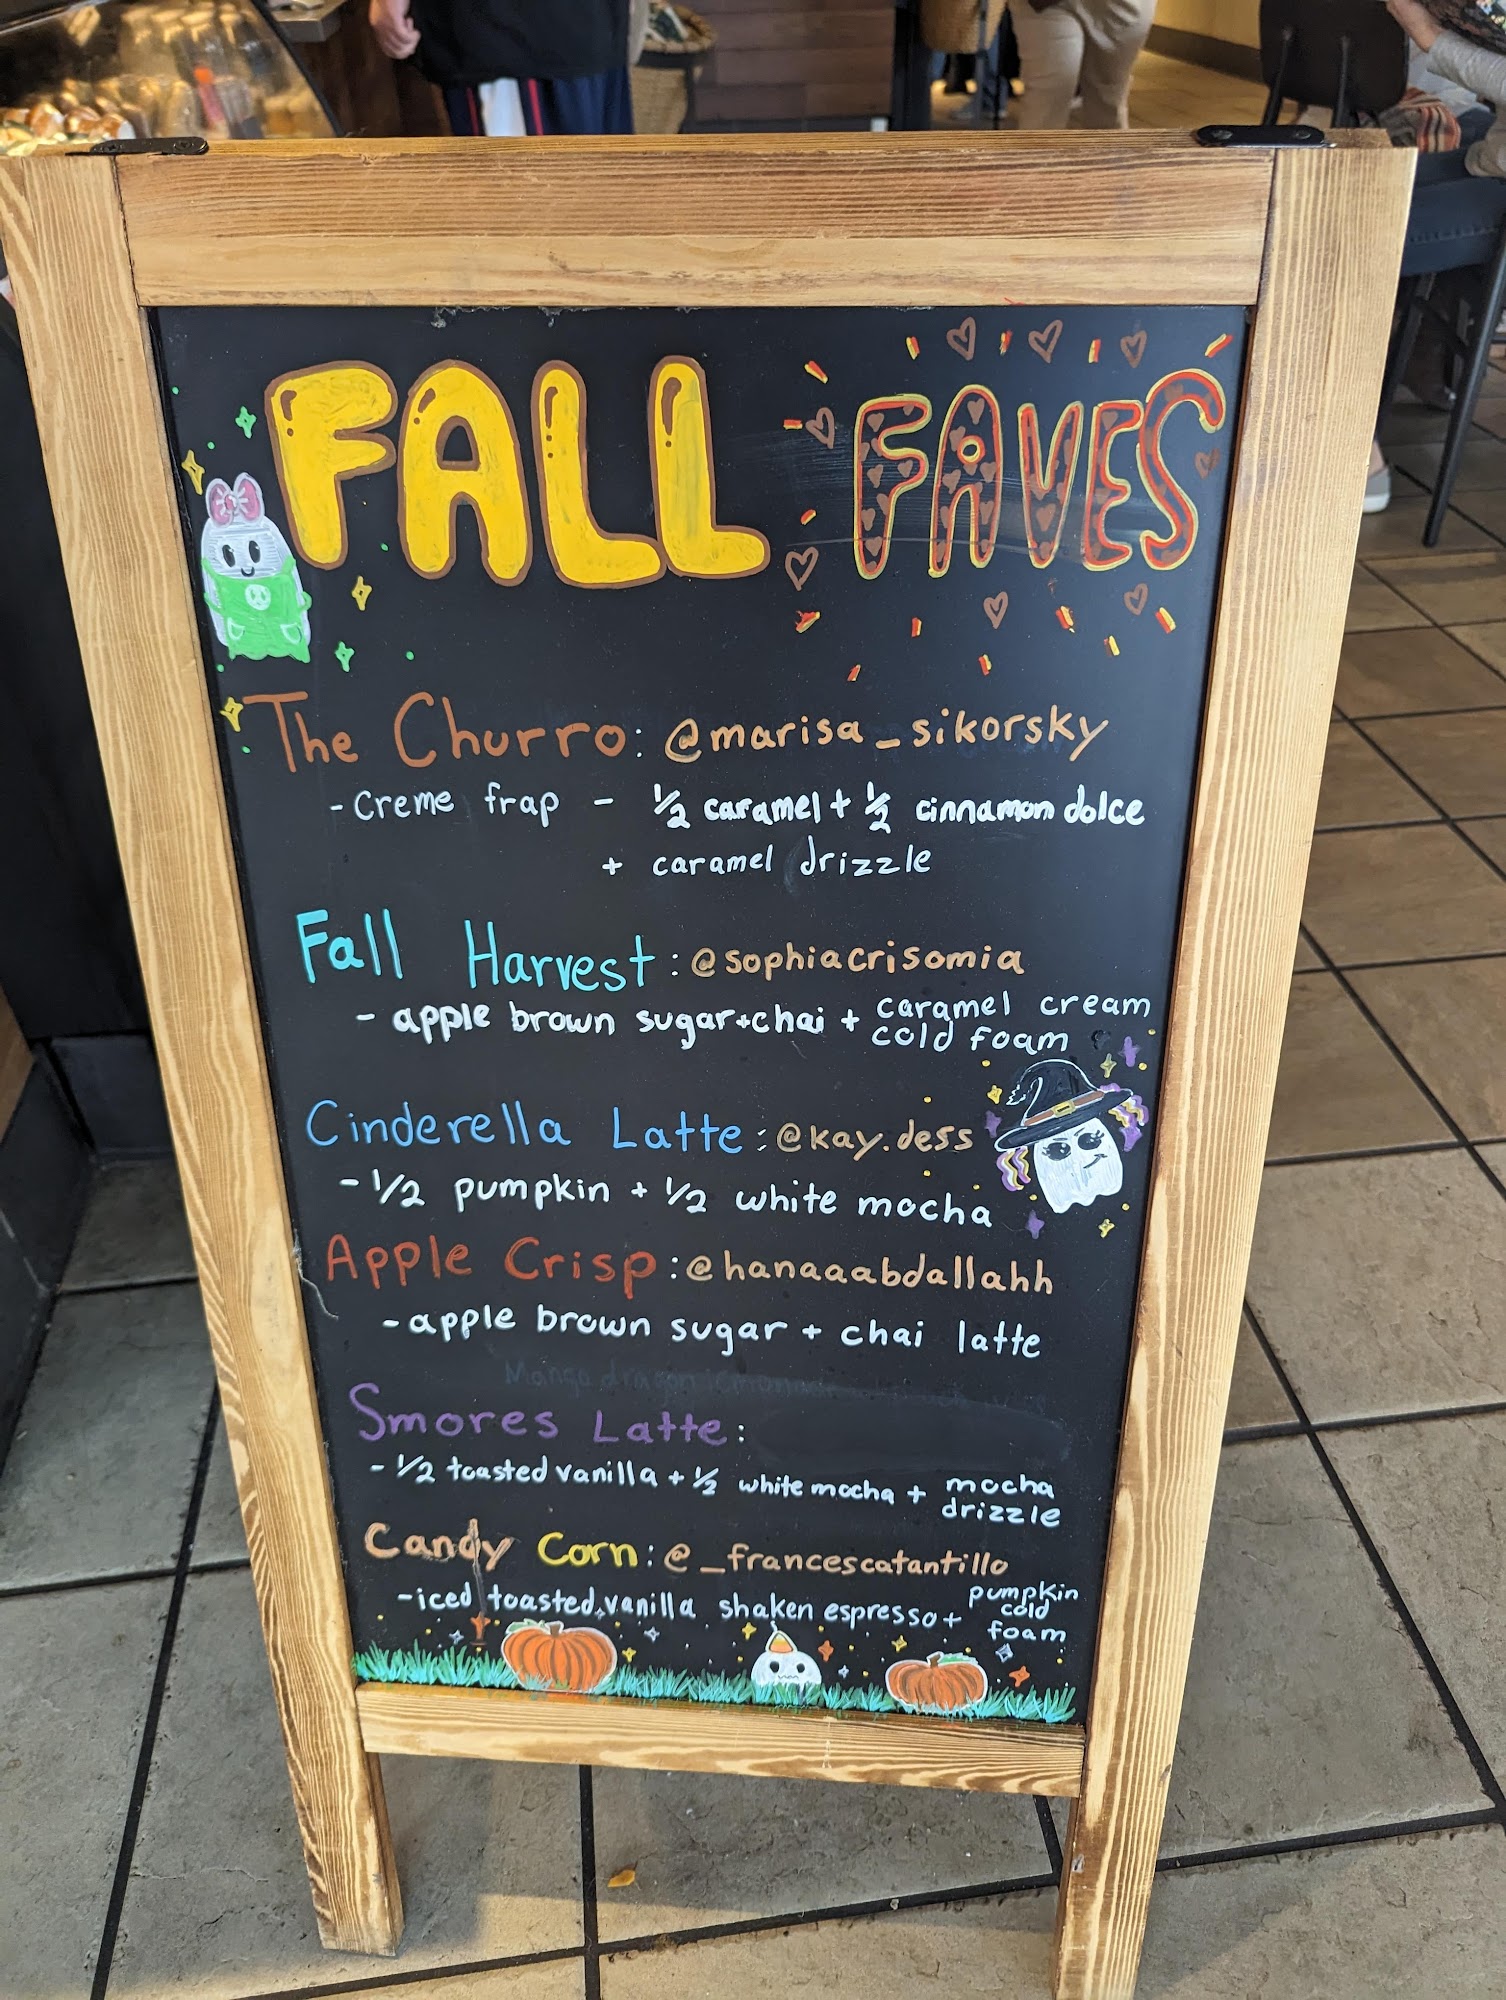 FALL FAVES
The Churro: @marisa_sikorsky
- Creme frap - 1/2 caramel + 1/2 cinnamon dolce
+ caramel drizzle
Fall Harvest: @sophiacrisomia
- apple brown sugar + chai + caramel cream
cold foam
Cinderella Latte: @kay.dess
- 1/2 pumpkin + 1/2 white mocha
Apple Crisp: @hanaaabdallahh
- apple brown sugar + chai latte
Mango dragon
Smores Latte:
- 1/2 toasted vanilla + 1/2 white mocha + mocha
drizzle
Candy Corn: @_francescatantillo
- iced toasted vanilla shaken espresso + pumpkin
cold
foam